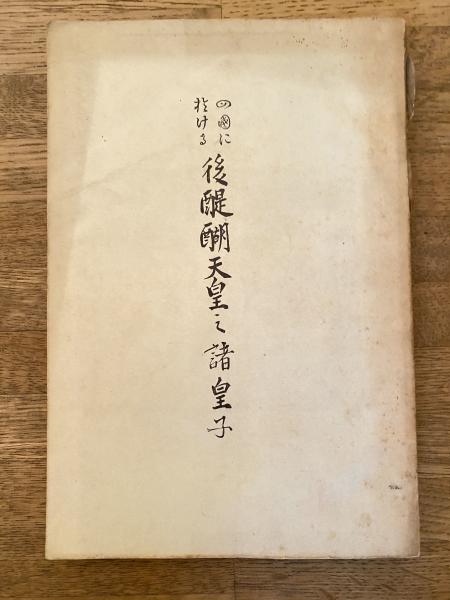 四國に
於ける
後醍醐天皇之諸皇子